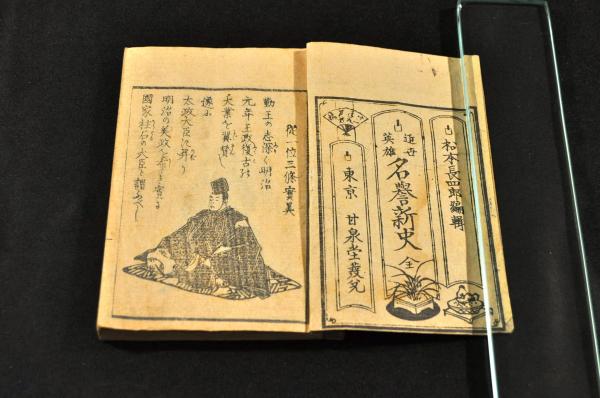 松本長四郎編輯
近世
英雄
名譽新史 全
東京 甘泉堂發兌
從一位三條實美
勤王の志深く明治
元年王政復古の
天業を翼賛し
遂に
太政大臣に昇り
明治の美政を 實に
國家柱石の大臣と謂ふべし